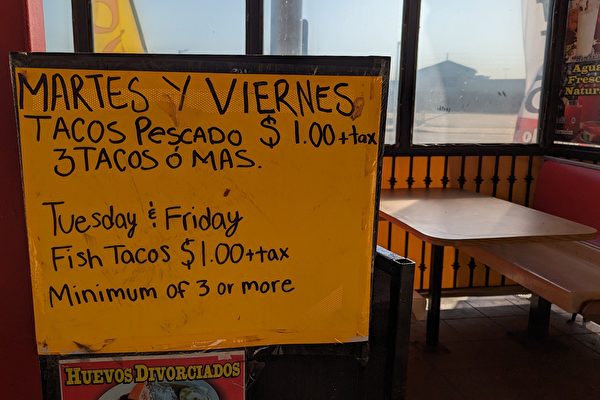 MARTES Y VIERNES
TACOS PESCADO $1.00+tax
3 TACOS Ó MAS.
Tuesday & Friday
Fish Tacos $1.00+tax
Minimum of 3 or more
HUEVOS DIVORCIADOS
Agua
Fresc
Natur